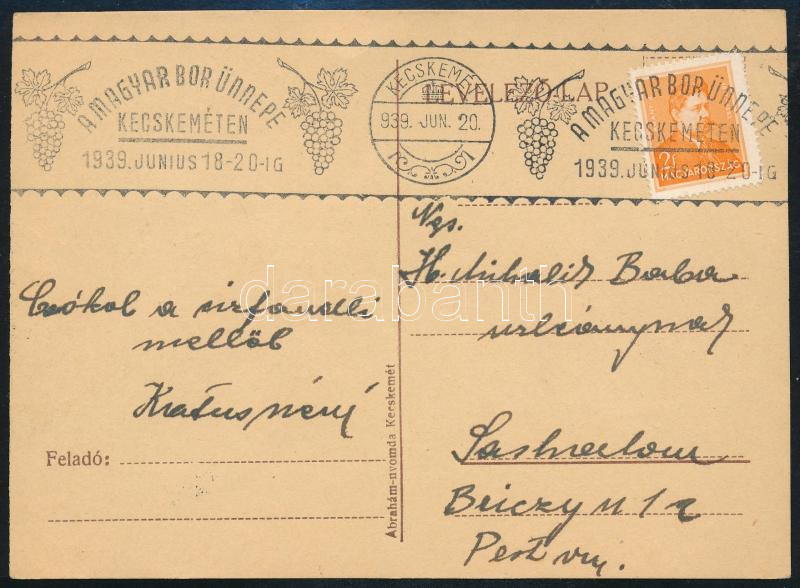 A MAGYAR BOR ÜNNEPE
KECSKEMÉTEN
1939. JUNIUS 18-20-IG
KECSKEMÉT
939. JUN. 20.
LEVELEZŐ-LAP
A MAGYAR BOR ÜNNEPE
KECSKEMÉTEN
1939. JUNIUS 18-20-IG
2f
MAGYARORSZÁG
Ngs.
H. Mihalik Baba
urleánynak
Sashalom
Pest vm.
Csókol a
mellöl
Katus néni
Feladó:
Abrahám-nyomda Kecskemét
darabanth